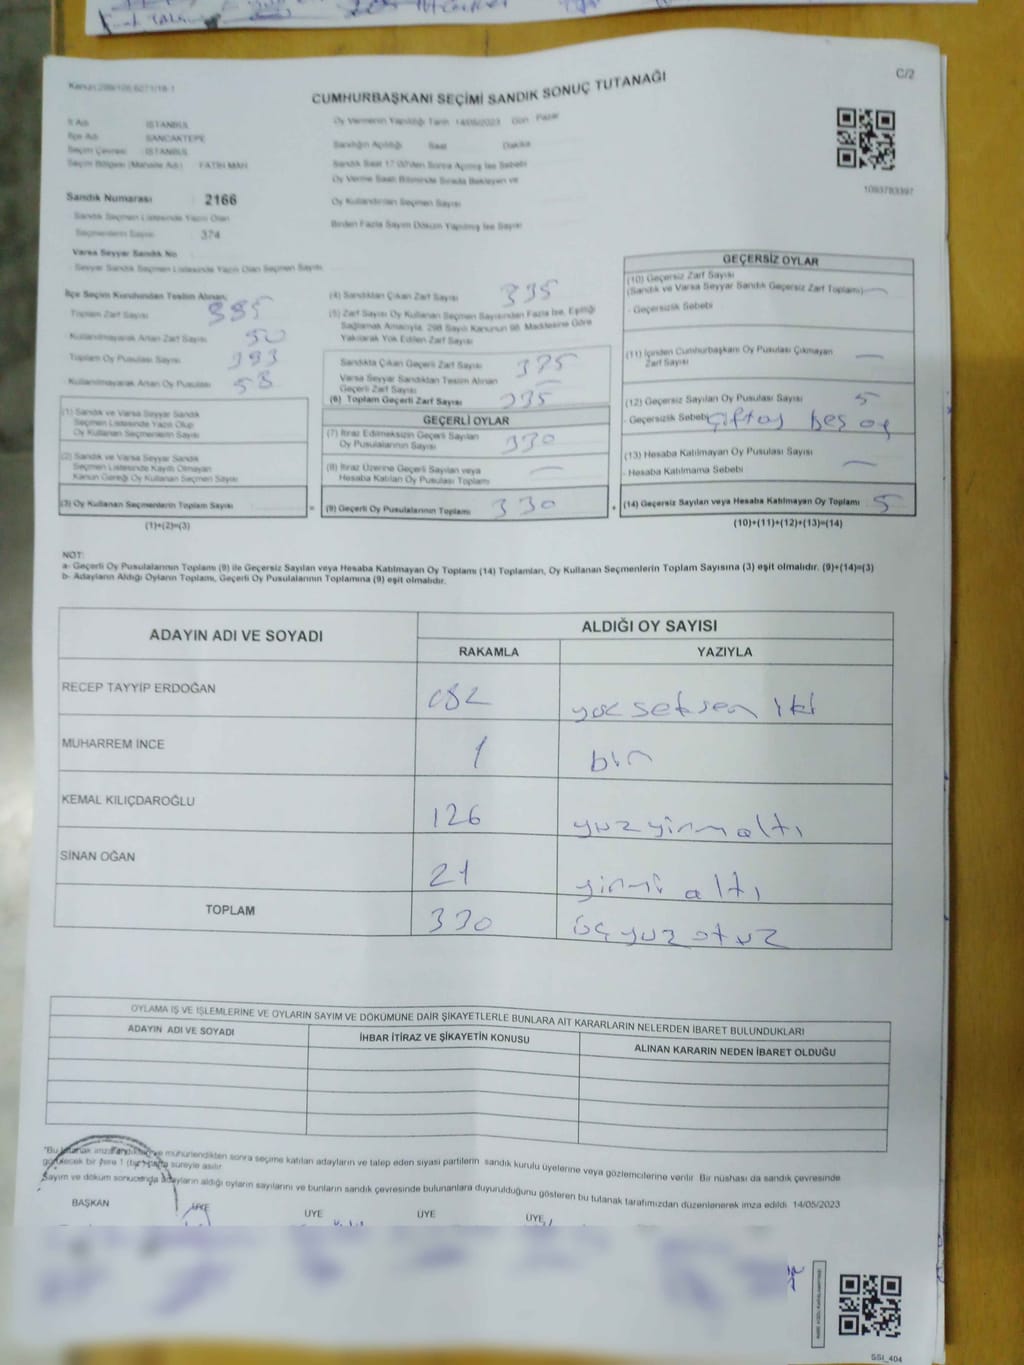 C/2
CUMHURBAŞKANI SEÇİMİ SANDIK SONUÇ TUTANAĞI
İl Adı İSTANBUL
İlçe Adı SANCAKTEPE
Seçim Çevresi İSTANBUL
Seçim Bölgesi (Mahalle Adı) FATİH MAH
Sandık Numarası 2166
Sandık Seçmen Listesinde Yazılı Olan
Seçmenlerin Sayısı 374
Varsa Seyyar Sandık No
Seyyar Sandık Seçmen Listesinde Yazılı Olan Seçmen Sayısı
Oy Vermenin Yapıldığı Tarih 14/05/2023 Gün Pazar
Sandığın Açıldığı Saat Dakika
Sandık Saat 17:00'den Sonra Açılmış İse Sebebi
Oy Verme Saati Bitiminde Sırada Bekleyen ve
Oy Kullandırılan Seçmen Sayısı
Birden Fazla Sayım Döküm Yapılmış İse Sayısı
1093783397
İlçe Seçim Kurulundan Teslim Alınan;
Toplam Zarf Sayısı 385
- Kullanılmayarak Artan Zarf Sayısı 50
Toplam Oy Pusulası Sayısı 393
- Kullanılmayarak Artan Oy Pusulası 58
(1) Sandık ve Varsa Seyyar Sandık
Seçmen Listesinde Yazılı Olup
Oy Kullanan Seçmenlerin Sayısı
(2) Sandık ve Varsa Seyyar Sandık
Seçmen Listesinde Kayıtlı Olmayan
Kanun Gereği Oy Kullanan Seçmen Sayısı
(3) Oy Kullanan Seçmenlerin Toplam Sayısı
(1)+(2)=(3)
(4) Sandıktan Çıkan Zarf Sayısı 335
(5) Zarf Sayısı Oy Kullanan Seçmen Sayısından Fazla İse, Eşitliği
Sağlamak Amacıyla, 298 Sayılı Kanunun 98. Maddesine Göre
Yakılarak Yok Edilen Zarf Sayısı
Sandıkta Çıkan Geçerli Zarf Sayısı 335
Varsa Seyyar Sandıktan Teslim Alınan
Geçerli Zarf Sayısı
(6) Toplam Geçerli Zarf Sayısı 335
GEÇERLİ OYLAR
(7) İtiraz Edilmeksizin Geçerli Sayılan
Oy Pusulalarının Sayısı 330
(8) İtiraz Üzerine Geçerli Sayılan veya
Hesaba Katılan Oy Pusulası Toplamı —
= (9) Geçerli Oy Pusulalarının Toplamı 330 +
GEÇERSİZ OYLAR
(10) Geçersiz Zarf Sayısı
(Sandık ve Varsa Seyyar Sandık Geçersiz Zarf Toplamı) —
- Geçersizlik Sebebi
(11) İçinden Cumhurbaşkanı Oy Pusulası Çıkmayan
Zarf Sayısı —
(12) Geçersiz Sayılan Oy Pusulası Sayısı 5
- Geçersizlik Sebebi beş oy
(13) Hesaba Katılmayan Oy Pusulası Sayısı
- Hesaba Katılmama Sebebi —
(14) Geçersiz Sayılan veya Hesaba Katılmayan Oy Toplamı 5
(10)+(11)+(12)+(13)=(14)
NOT:
a- Geçerli Oy Pusulalarının Toplamı (9) ile Geçersiz Sayılan veya Hesaba Katılmayan Oy Toplamı (14) Toplamları, Oy Kullanan Seçmenlerin Toplam Sayısına (3) eşit olmalıdır. (9)+(14)=(3)
b- Adayların Aldığı Oyların Toplamı, Geçerli Oy Pusulalarının Toplamına (9) eşit olmalıdır.
ADAYIN ADI VE SOYADI ALDIĞI OY SAYISI
RAKAMLA YAZIYLA
RECEP TAYYİP ERDOĞAN 182 yüz seksen iki
MUHARREM İNCE 1 bir
KEMAL KILIÇDAROĞLU 126 yüz yirmi altı
SİNAN OĞAN 21 yirmi altı
TOPLAM 330 üç yüz otuz
OYLAMA İŞ VE İŞLEMLERİNE VE OYLARIN SAYIM VE DÖKÜMÜNE DAİR ŞİKAYETLERLE BUNLARA AİT KARARLARIN NELERDEN İBARET BULUNDUKLARI
ADAYIN ADI VE SOYADI İHBAR İTİRAZ VE ŞİKAYETİN KONUSU ALINAN KARARIN NEDEN İBARET OLDUĞU
*Bu tutanak imzalandıktan ve mühürlendikten sonra seçime katılan adayların ve talep eden siyasi partilerin sandık kurulu üyelerine veya gözlemcilerine verilir. Bir nüshası da sandık çevresinde
görülecek bir yere 1 (bir) hafta süreyle asılır.
Sayım ve döküm sonucunda adayların aldığı oyların sayılarını ve bunların sandık çevresinde bulunanlara duyurulduğunu gösteren bu tutanak tarafımızdan düzenlenerek imza edildi. 14/05/2023
BAŞKAN ÜYE ÜYE ÜYE
SSI_404